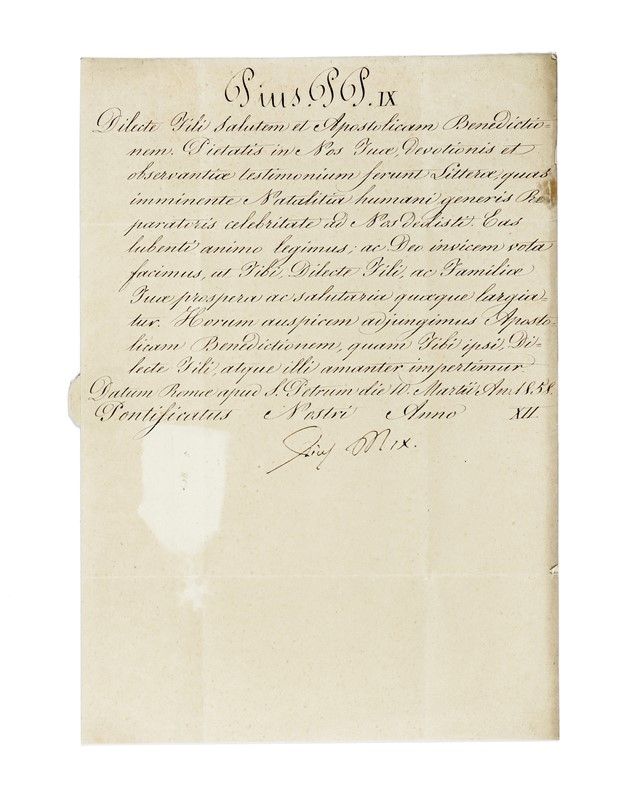 Pius. P P. IX
Dilecte Fili Salutem et Apostolicam Benedictio-
nem. Pietatis in Nos Tuæ, Devotionis et
observantiæ testimonium ferunt Litteræ, quas
imminente Natalitia humani generis Re
paratoris celebritate ad Nos dedisti. Eas
lubenti animo legimus, ac Deo invicem vota
facimus, ut Tibi, Dilecte Fili, ac Familiæ
Tuæ prospera ac salutaria quæque largia-
tur. Horum auspicem adjungimus Aposto-
licam Benedictionem, quam Tibi ipsi, Di-
lecte Fili, atque illi amanter impertimur
Datum Romæ apud S. Petrum die 10. Martii An. 1858.
Pontificatus Nostri Anno XII
Pius PP. IX.